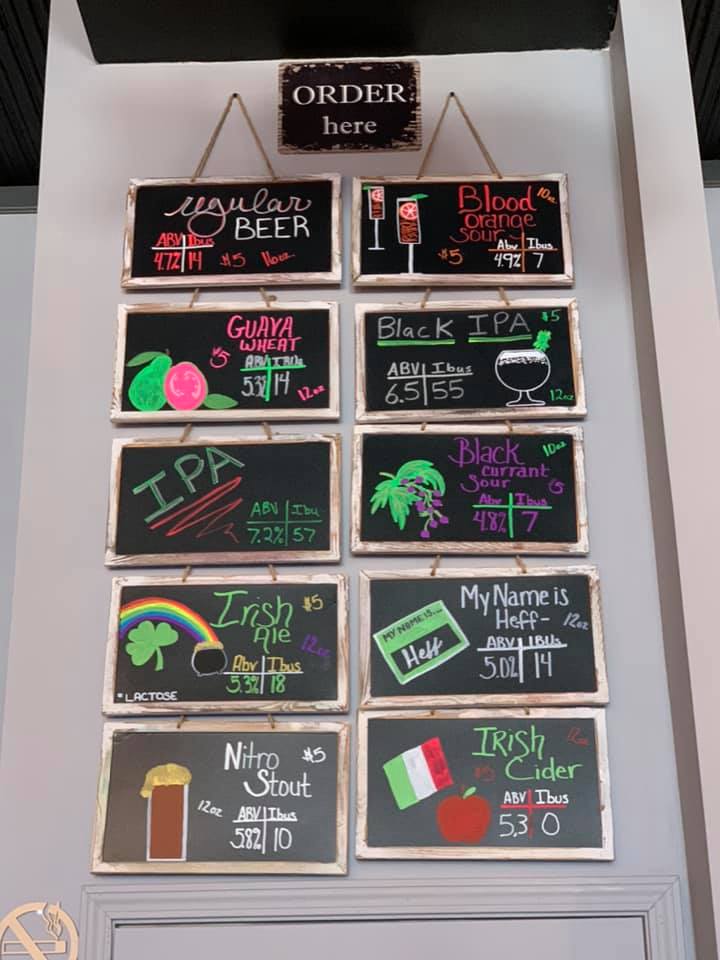 ORDER
here
regular
BEER
ABV Ibus
4.7% 14 $5 16oz
Blood 10oz
orange
sour
$5 Abv Ibus
4.9% 7
GUAVA
WHEAT
$5 ABV IBUs
5.3% 14 12oz
Black IPA $5
ABV Ibus
6.5 55
12oz
IPA
ABV Ibu
7.2% 57
Black 10oz
currant
Sour $5
Abv Ibus
4.8% 7
Irish $5
Ale 12oz
Abv Ibus
5.3% 18
*LACTOSE
My Name is
Heff- 12oz
MY NAME IS....
Heff
ABV IBUs
5.0% 14
Nitro $5
Stout
12oz ABV Ibus
5.8% 10
IRISh 12oz
$5 Cider
ABV Ibus
5.3 0